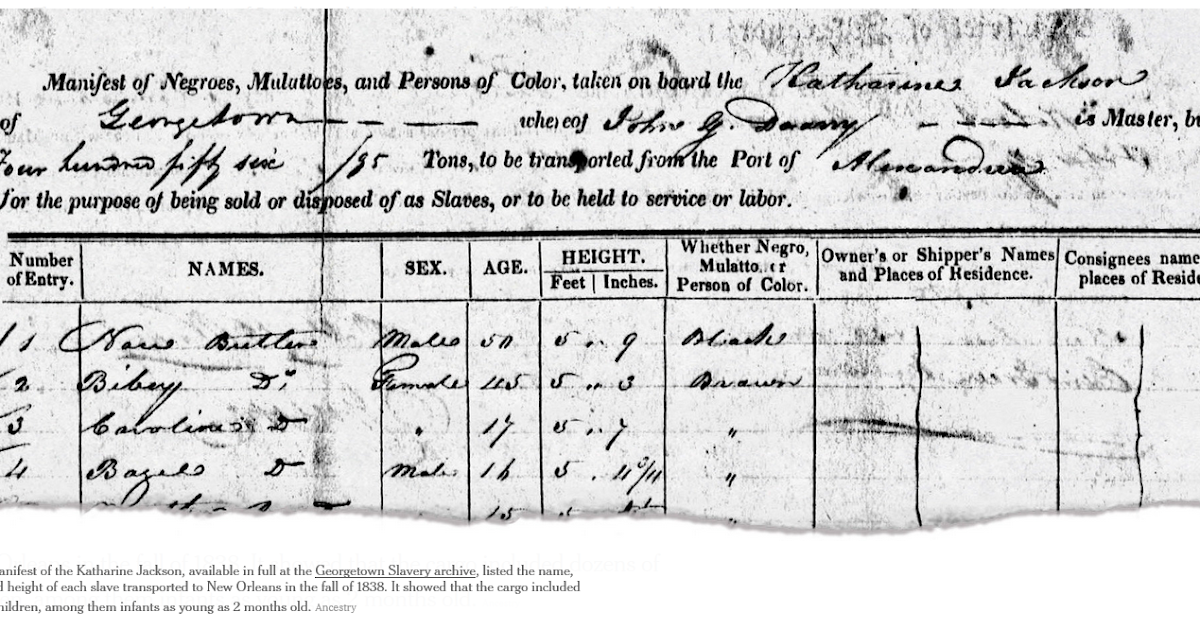 Manifest of Negroes, Mulattoes, and Persons of Color, taken on board the Katharine Jackson
of Georgetown whereof John G. is Master, bu
Four hundred fifty six /95 Tons, to be transported from the Port of Alexandria
for the purpose of being sold or disposed of as Slaves, or to be held to service or labor.
Number of Entry. NAMES. SEX. AGE. HEIGHT. Feet Inches. Whether Negro, Mulatto, or Person of Color. Owner's or Shipper's Names and Places of Residence. Consignees name places of Reside
1 Nace Butler Male 50 5 " 9 Black
2 Bibey Do Female 45 5 " 3 Brown
3 Caroline D " 17 5 " 7 "
4 Bazele D Male 16 5 "
15
anifest of the Katharine Jackson, available in full at the Georgetown Slavery archive, listed the name,
d height of each slave transported to New Orleans in the fall of 1838. It showed that the cargo included
hildren, among them infants as young as 2 months old. Ancestry